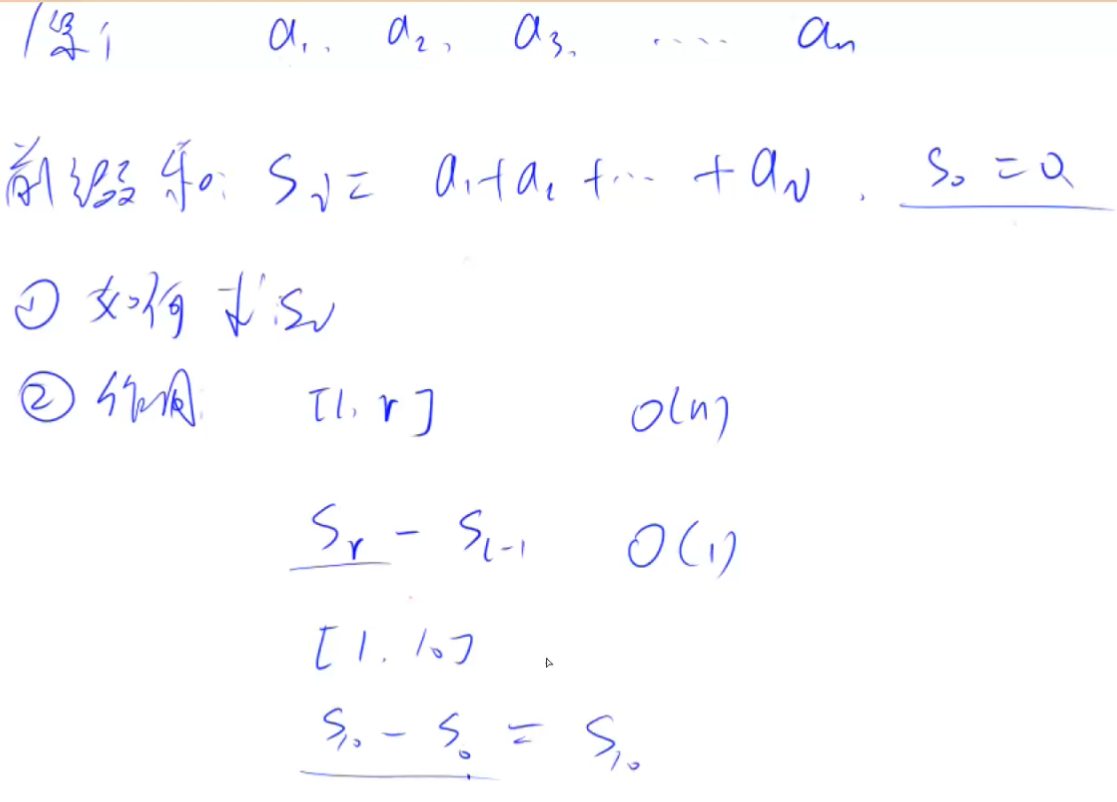 a₁, a₂, a₃, ..... aₙ
前缀和: Sᵢ = a₁+a₂+...+aᵢ. S₀ = 0
① 如何求Sᵢ
② 作用 [l, r] O(n)
Sᵣ - Sₗ₋₁ O(1)
[1, 10]
S₁₀ - S₀ = S₁₀